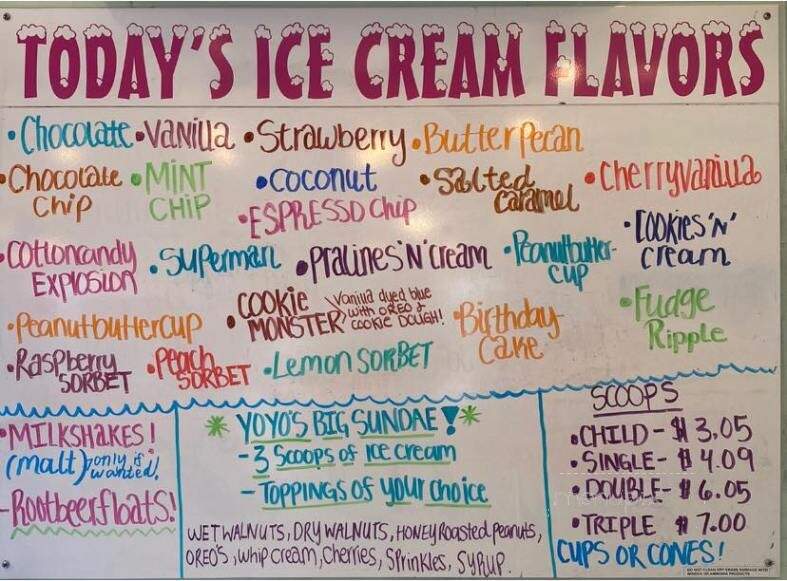 TODAY'S ICE CREAM FLAVORS
•Chocolate •Vanilla •Strawberry •Butter Pecan
•Chocolate Chip
•MINT CHIP
•COCONUT
•Salted Caramel
•Cherryvanilla
•ESPRESSO Chip
•Cottoncandy Explosion
•Superman
•Pralines'N'Cream
•Peanutbutter-cup
•COOKIES'N' Cream
•Peanutbuttercup
•COOKIE MONSTER
Vanilla dyed blue with OREO & COOKIE DOUGH!
•Birthday Cake
•Fudge Ripple
•Raspberry SORBET
•Peach SORBET
•Lemon SORBET
•MILKSHAKES!
(malt) only if wanted!
-Rootbeerfloats!
YOYO'S BIG SUNDAE!
-3 Scoops of Ice Cream
-TOPPINGS OF your choice
WET WALNUTS, DRY WALNUTS, HONEY Roasted Peanuts,
OREO'S, whip cream, Cherries, Sprinkles, Syrup.
SCOOPS
•CHILD-$ 3.05
•SINGLE-$ 4.09
•DOUBLE-$ 6.05
•TRIPLE $ 7.00
CUPS OR CONES!